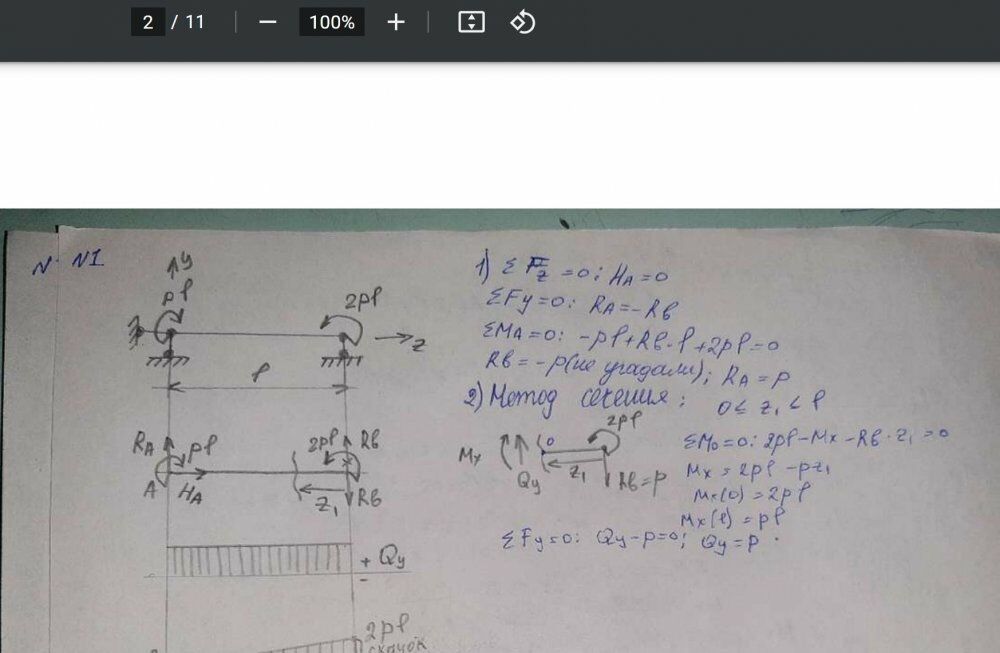 2 / 11
100%
N
N1
y
pl
2pl
z
l
RA
pl
2pl
Rв
A
HA
Z1
Rв
+ Qy
-
2pl
скачок
1) Σ Fz = 0: HA = 0
ΣFy = 0: RA = -Rв
ΣMA = 0: -pl + Rв·l + 2pl = 0
Rв = -p (не угадали); RA = p
2) Метод сечения: 0 ≤ z1 < l
2pl
Mx
Qy
0
z1
Rв = p
ΣM0 = 0: 2pl - Mx - Rв·z1 = 0
Mx = 2pl - pz1
Mx(0) = 2pl
Mx(l) = pl
ΣFy = 0: Qy - p = 0; Qy = p